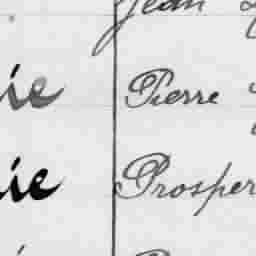 Jean
ie Pierre
ie Prosper